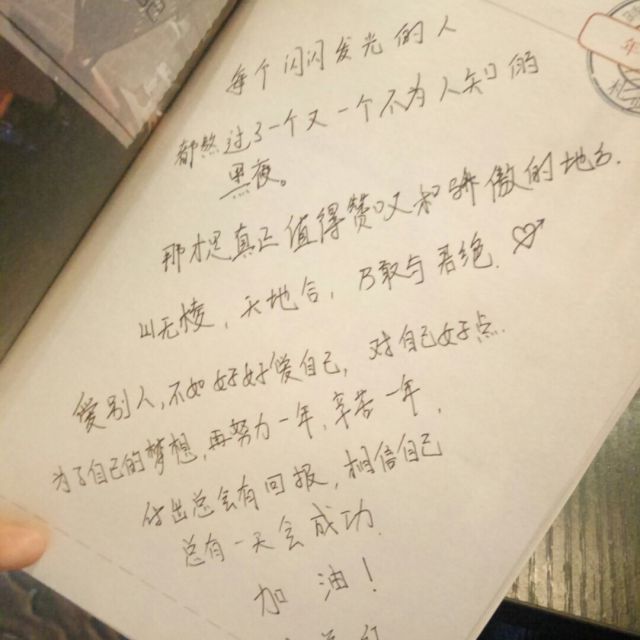 每个闪闪发光的人
都熬过了一个又一个不为人知的
黑夜。
那才是真正值得赞叹和骄傲的地方.
山无棱，天地合，乃敢与君绝.
爱别人，不如好好爱自己，对自己好点.
为了自己的梦想，再努力一年，辛苦一年，
付出总会有回报，相信自己
总有一天会成功.
加油！